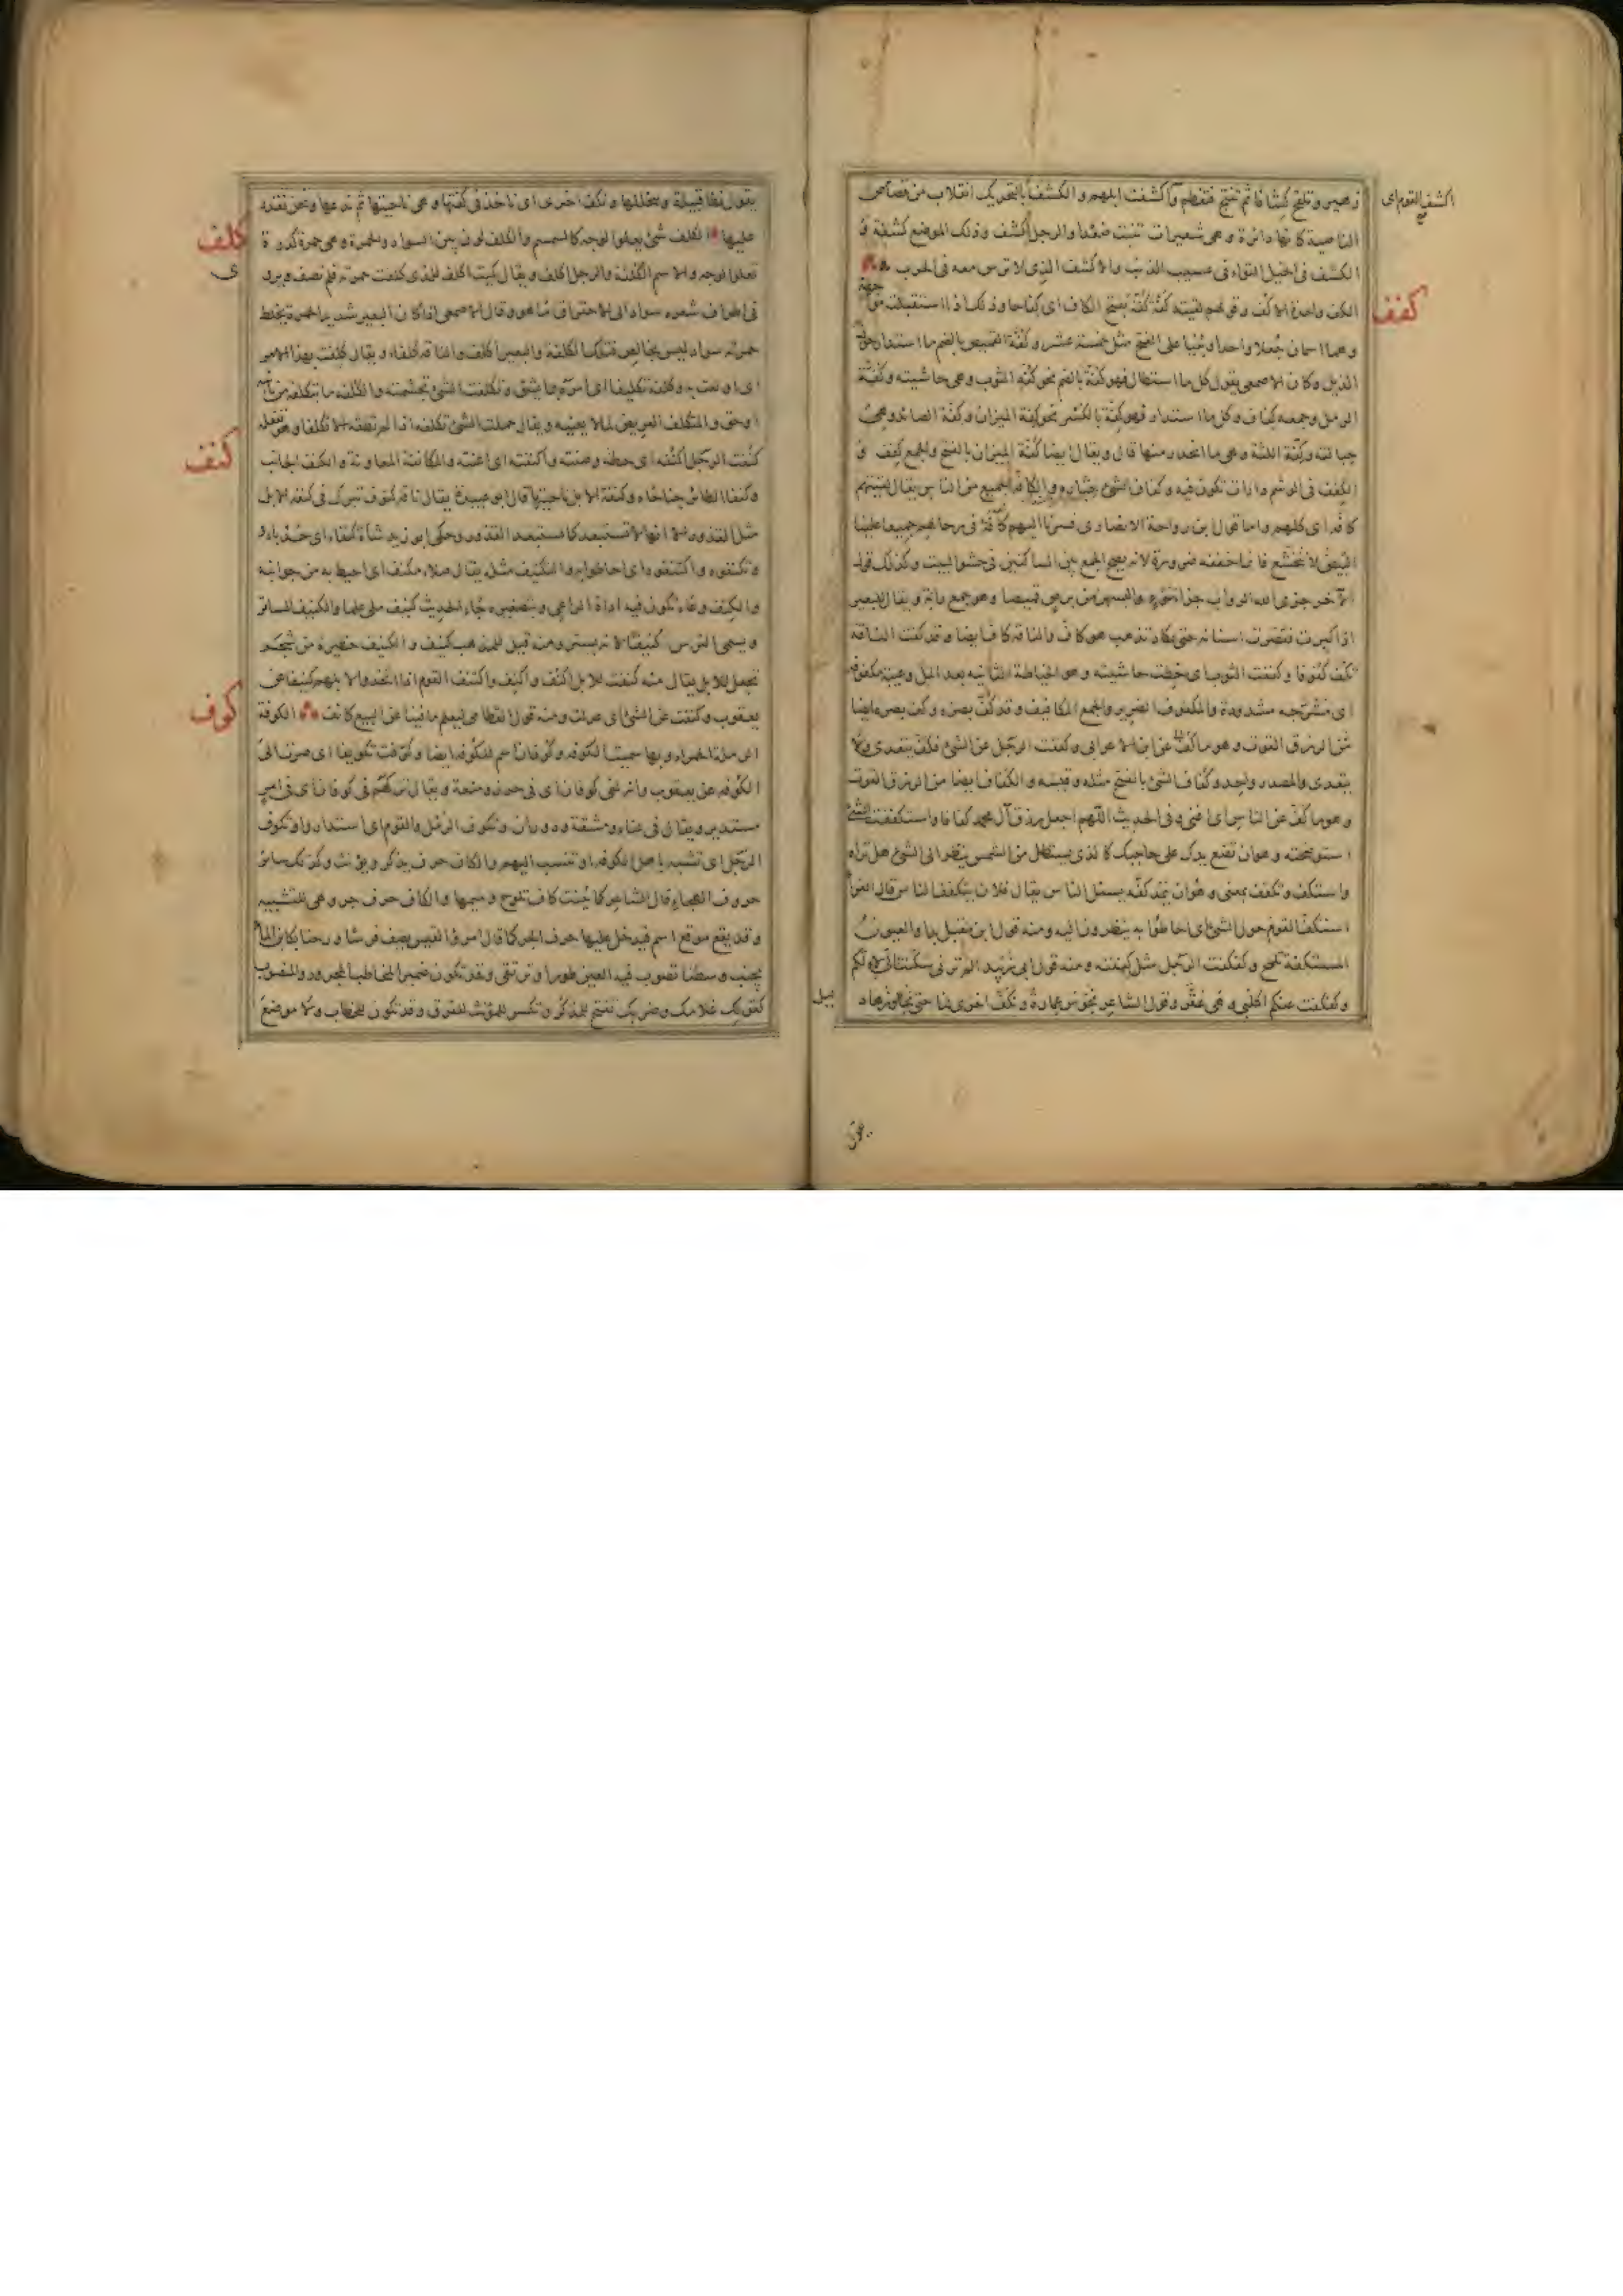 اكشف القوم اى
زهير وتلقح كشافا ثم تنتج فتفطم واكشفت ابلهم والكشف بالتحريك انقلاب من قصاص
الناصية كانها دائرة وهى شعيرات تنبت صعدا والرجل اكشف وذلك الموضع كشفة و
الكشف فى الخيل التواء فى عسيب الذنب والاكشف الذى لا ترس معه فى الحرب
كفف
الكف واحدة الاكف وقولهم لقيته كفة كفة بفتح الكاف اى كفاحا وذلك اذا استقبلته
وهما اسمان جعلا واحدا وبنيا على الفتح مثل خمسة عشر وكفة القميص بالضم ما استدار حول
الذيل وكان الاصمعى يقول كل ما استطال فهو كفة بالضم نحو كفة الثوب وهى حاشيته وكفة
الرمل وجمعه كفاف وكل ما استدار فهو كفة بالكسر نحو كفة الميزان وكفة الصائد وهى
حبالته وكفة اللثة وهى ما انحدر منها قال ويقال ايضا كفة الميزان بالفتح والجمع كفف و
الكفف فى الوشم دارات تكون فيه وكفاف الشئ والكافة الجميع من الناس يقال لقيتهم
كافة اى كلهم واما قول ابن رواحة الانصارى فسرنا اليهم كافة فى رحالهم جميعا علينا
البيض لا نتخشع فانما خففه ضرورة لانه لا يصح الجمع بين الساكنين فى حشو البيت وكذلك قول
الآخر جزى الله الرواب جزاء سوء والبسهن من برص قميصا وهو جمع دابة ويقال للبعير
اذا كبرت فقصرت اسنانه حتى تكاد تذهب هو كاف والناقة كاف ايضا وقد كفت الناقة
تكف كفوفا وكففت الثوب اى خطت حاشيته وهو الخياطة الثانية بعد المل وعيبة مكفوفة
اى مشرجة مشدودة والمكفوف الضرير والجمع المكافيف وقد كف بصره وكف بصره ايضا
من الرزق القوت وهو ما كف عن ابن الاعرابى وكففت الرجل عن الشئ فكف يتعدى ولا
يتعدى والمصدر واحد وكفاف الشئ بالفتح مثله وقيسه والكفاف ايضا من الرزق القوت
وهو ما كف عن الناس اى اغنى وفى الحديث اللهم اجعل رزق آل محمد كفافا واستكففت الشئ
استوضحته وهو ان تضع يدك على حاجبك كالذى يستظل من الشمس ينظر الى الشئ هل تراه
واستكف وتكفف بمعنى وهو ان يمد كفه يسئل الناس يقال فلان يتكفف الناس قال الفراء
استكف القوم حول الشئ اى احاطوا به ينظرون اليه ومنه قول ابن مقبل بدا والعيون
المستكفة تلمح وكفكفت الرجل مثل كففته ومنه قول ابى زبيد الم ترنى سكنت لأيا
وكفكفت عنكم اكلبى وهى عقر وقول الشاعر نحوس عمارة ونكف اخرى لنا حتى نجاوزها د
ييل
يقول نطأ قبيلة ونتخللها ونكف اخرى اى ناخذ فى كفتها وهى ناحيتها ثم ندعها ونحن نقدر
عليها الكلف شئ يعلو الوجه كالسمسم والكلف لون بين السواد والحمرة وهى حمرة كدرة
كلف
ى
تعلو الوجه والاسم الكلفة والرجل اكلف ويقال كميت اكلف للذى كلفت حمرته فلم تصف ويرى
فى اطراف شعره سواد الى الاحتراق ما هو وقال الاصمعى اذا كان البعير شديد الحمرة يخلط
حمرته سواد ليس بخالص فتلك الكلفة والبعير اكلف والناقة كلفاء ويقال كلفت بهذا الامر
اى اولعت به وكلفه تكليفا اى امره بما يشق وتكلفت الشئ تجشمته والكلفة ما تتكلفه من نائبة
او حق والمتكلف العريض لما لا يعنيه ويقال حملت الشئ تكلفة اذا لم تطقه الا تكلفا وهو تفعلة
كنف
كنفت الرجل اكنفه اى حطته وصنته واكنفته اى اعنته والمكانفة المعاونة والكنف الجانب
وكنفا الطائر جناحاه وكنفة الابل ناحيتها قال ابو عبيدة يقال ناقة كنوف تبرك فى كنفة الابل
مثل القذور الا انها لا تستبعد كما تستبعد القذور وحكى ابو زيد شاة كنفاء اى حدباء و
وتكنفوه واكتنفوه اى احاطوا به والتكنيف مثله يقال صلاء مكنف اى احيط به من جوانبه
والكنف وعاء تكون فيه اداة الراعى وبتصغيره جاء الحديث كنيف ملئ علما والكنيف الساتر
ويسمى الترس كنيفا لانه يستر ومنه قيل للمذهب كنيف والكنيف حظيرة من شجر
تجعل للابل يقال منه كنفت للابل اكنف واكنف واكتنف القوم اذا اتخذوا لابلهم كنيفا عن
يعقوب وكنفت عن الشئ اى عدلت ومنه قول القطامى ليعلم ما فينا عن البيع كانف الكوفة
كوف
الرملة الحمراء وبها سميت الكوفة وكوفان اسم للكوفة ايضا وكوفت تكويفا اى صرت الى
الكوفة عن يعقوب وانه لفى كوفان اى فى حرز ومنعة ويقال تركتهم فى كوفان اى فى امر
مستدير ويقال فى عناء ومشقة ودوران وتكوف الرمل والقوم اى استداروا وتكوف
الرجل اى تشبه باهل الكوفة او تنسب اليهم والكاف حرف يذكر ويؤنث وكذلك سائر
حروف الهجاء قال الشاعر كما بينت كاف تلوح وميمها والكاف حرف جر وهى للتشبيه
وقد يقع موقع اسم فيدخل عليها حرف الجر كما قال امرؤ القيس يصف فرسا ورحنا بكابن الماء
يجنب وسطنا تصوب فيه العين طورا وترتقى وقد تكون ضمير المخاطب المجرور والمنصوب
كقولك غلامك وضربك تفتح للمذكر وتكسر للمؤنث للفرق وقد تكون للخطاب ولا موضع